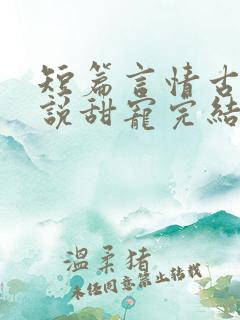 短篇言情古
說甜寵完結
溫柔猪
未经同意禁止转载